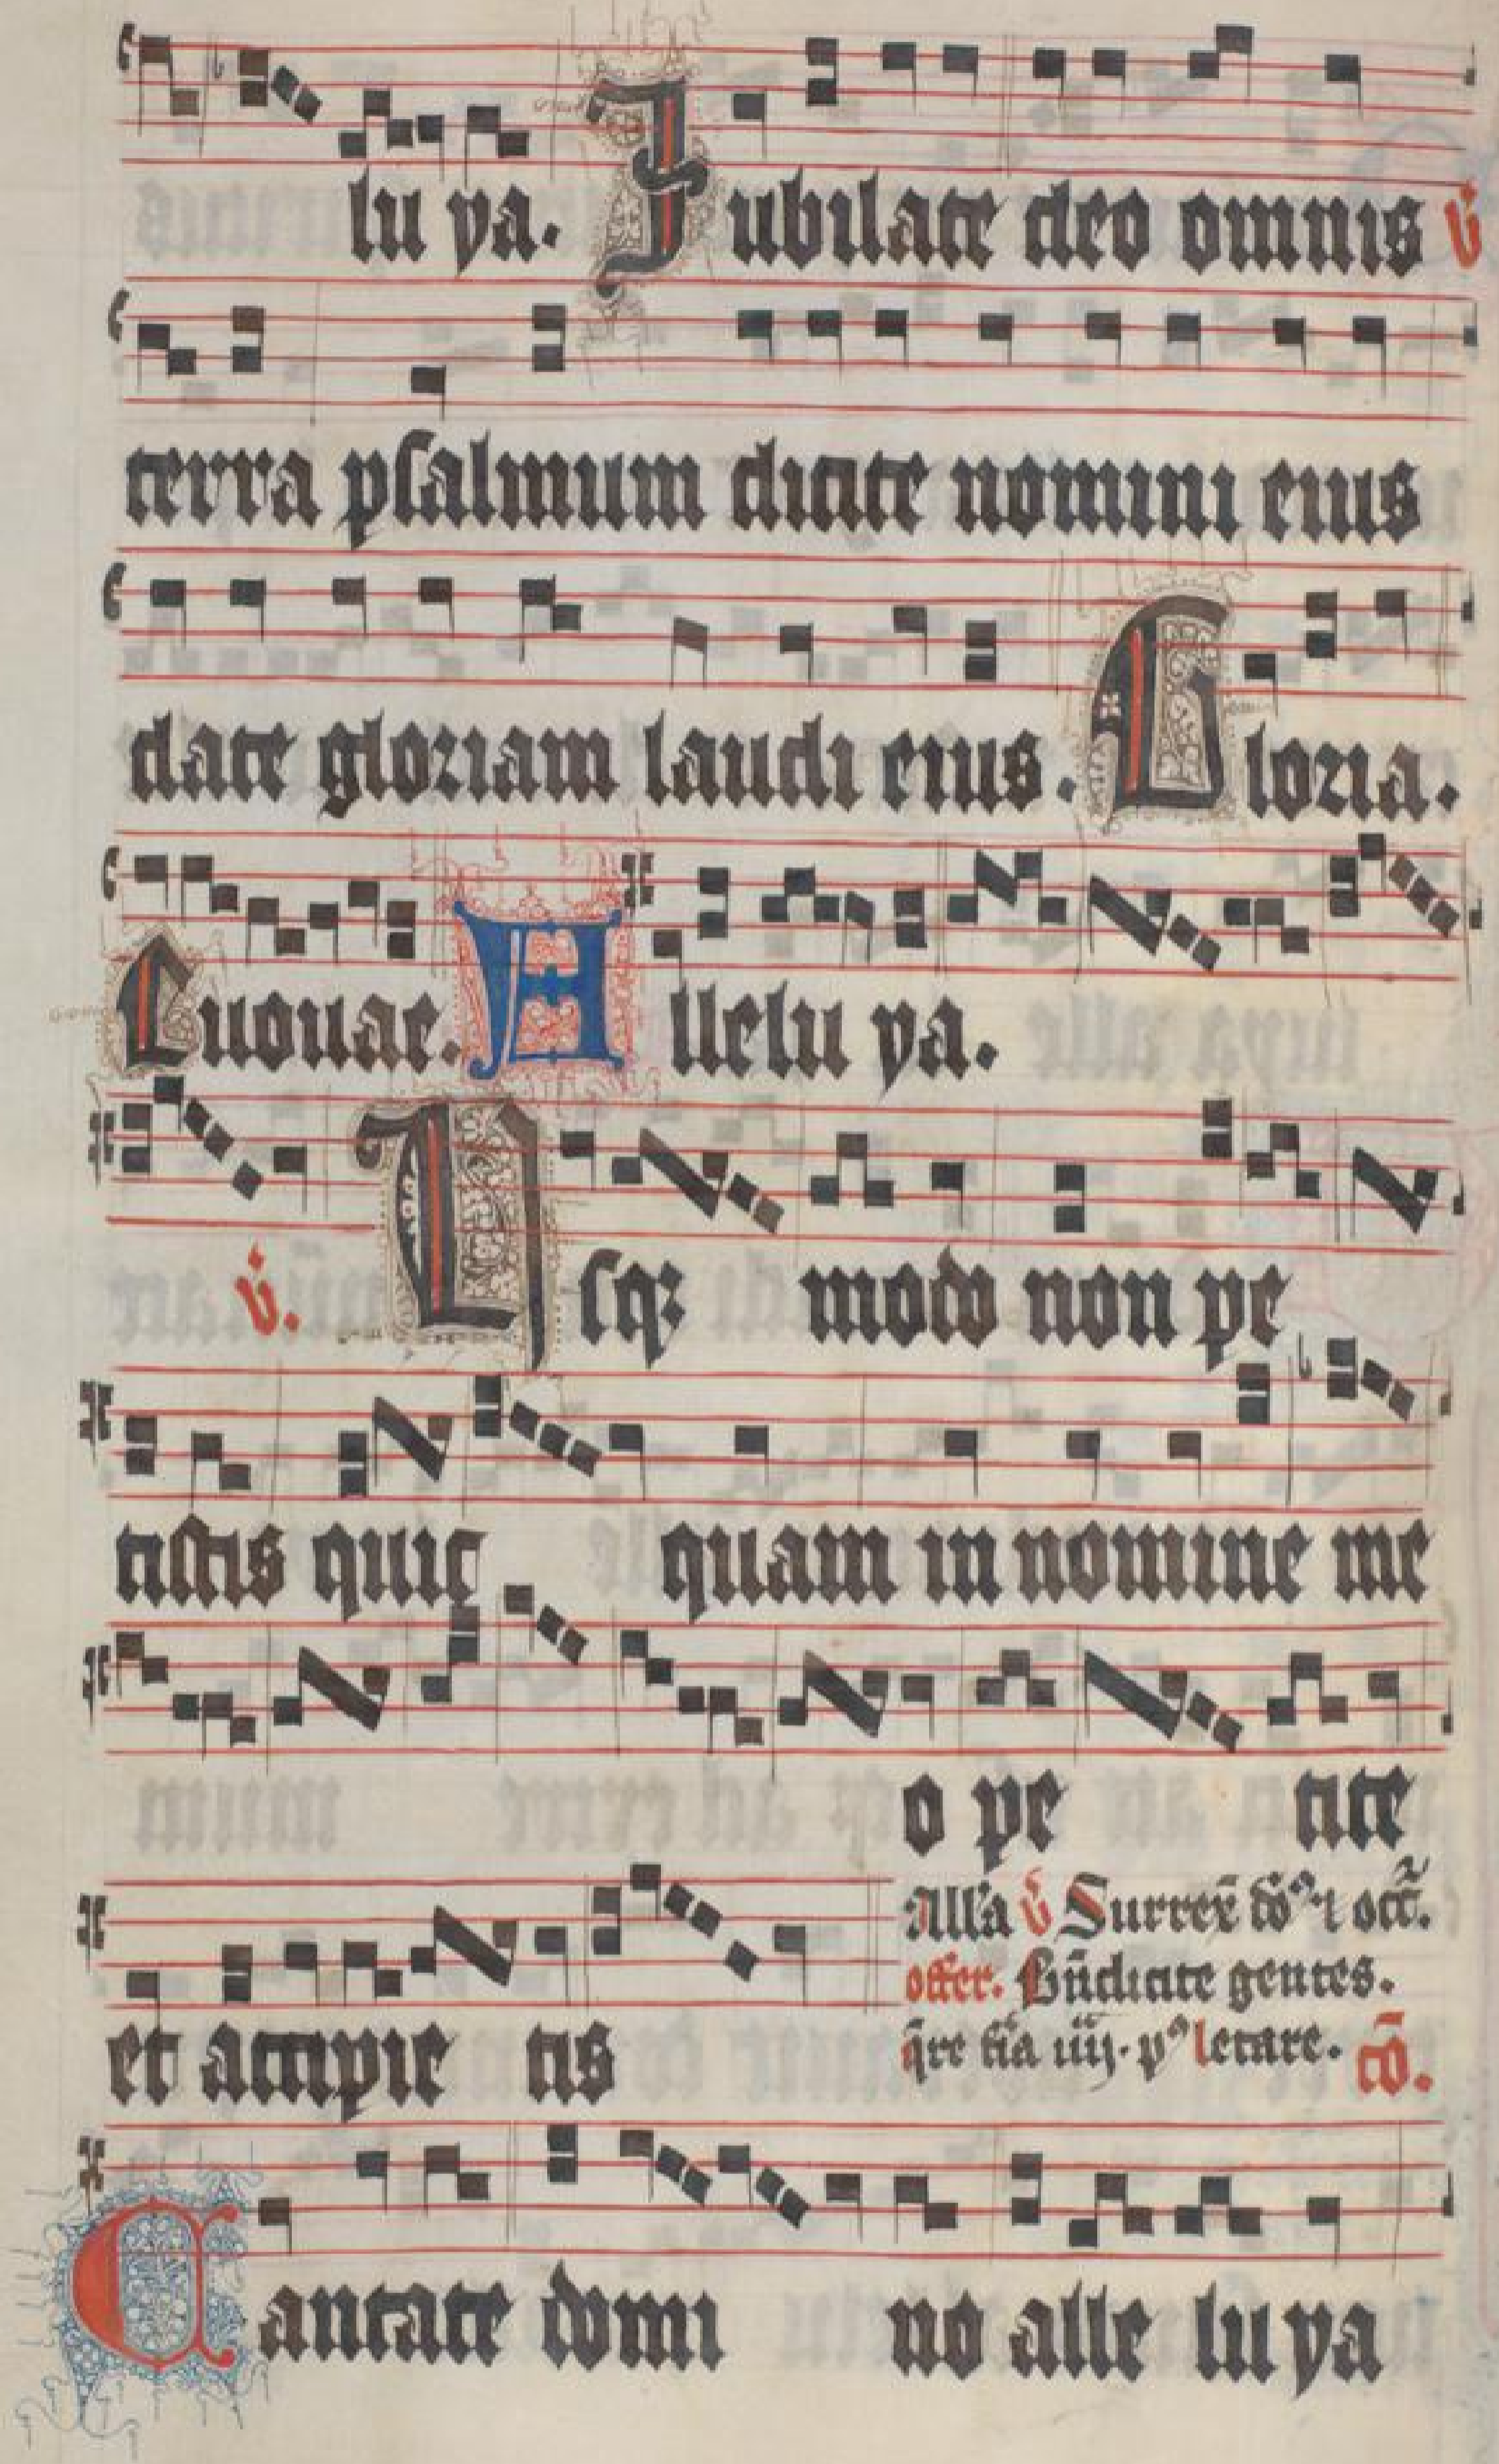 lu ya. Jubilate deo omnis v̇
terra psalmum dicite nomini eius
date gloriam laudi eius. Gloria.
Euouae. Allelu ya.
v̇. Usqꝫ modo non pe
tistis quic quam in nomine me
o pe tite
All'a v̇ Surrex̄
offer. Bn̄dicite gentes.
et accipie tis
q̄re iiij. p letare. cō.
Cantate domi no alle lu ya